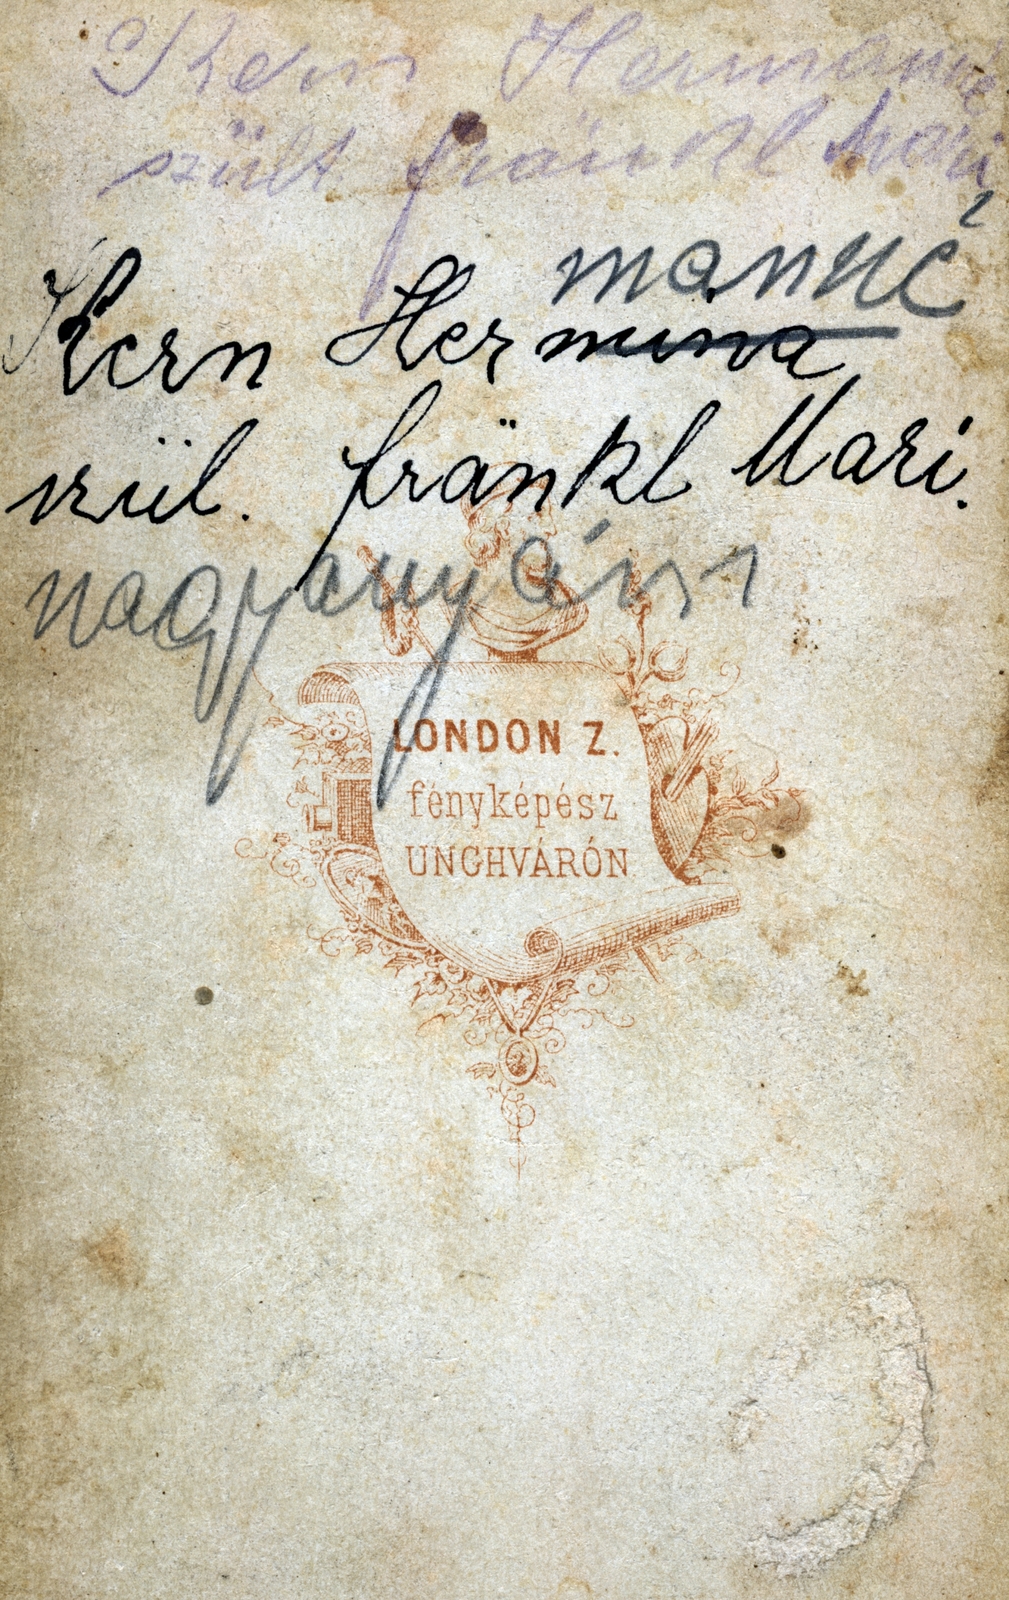 Kern Hermanné
szült. fränkl Mari
manné
Kern Hermina
szül. fränkl Mari.
nagyanyám
LONDON Z.
fényképész
UNGHVÁRÓN